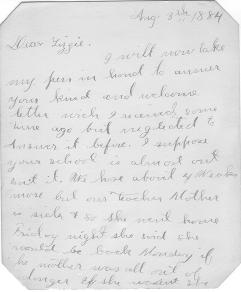 Aug 3th 1884
Dear Lizzie.
I will now take
my pen in hand to answer
your kind and welcome
letter wich I received some
time ago but neglected to
answer it before. I suppose
your school is almost out
isnt it. We have about 4 Weeks
more but our teacher Mother
is sick & so she went home
Friday night she said she
would be back Monday if
he mother was all out of
danger if she wasent she